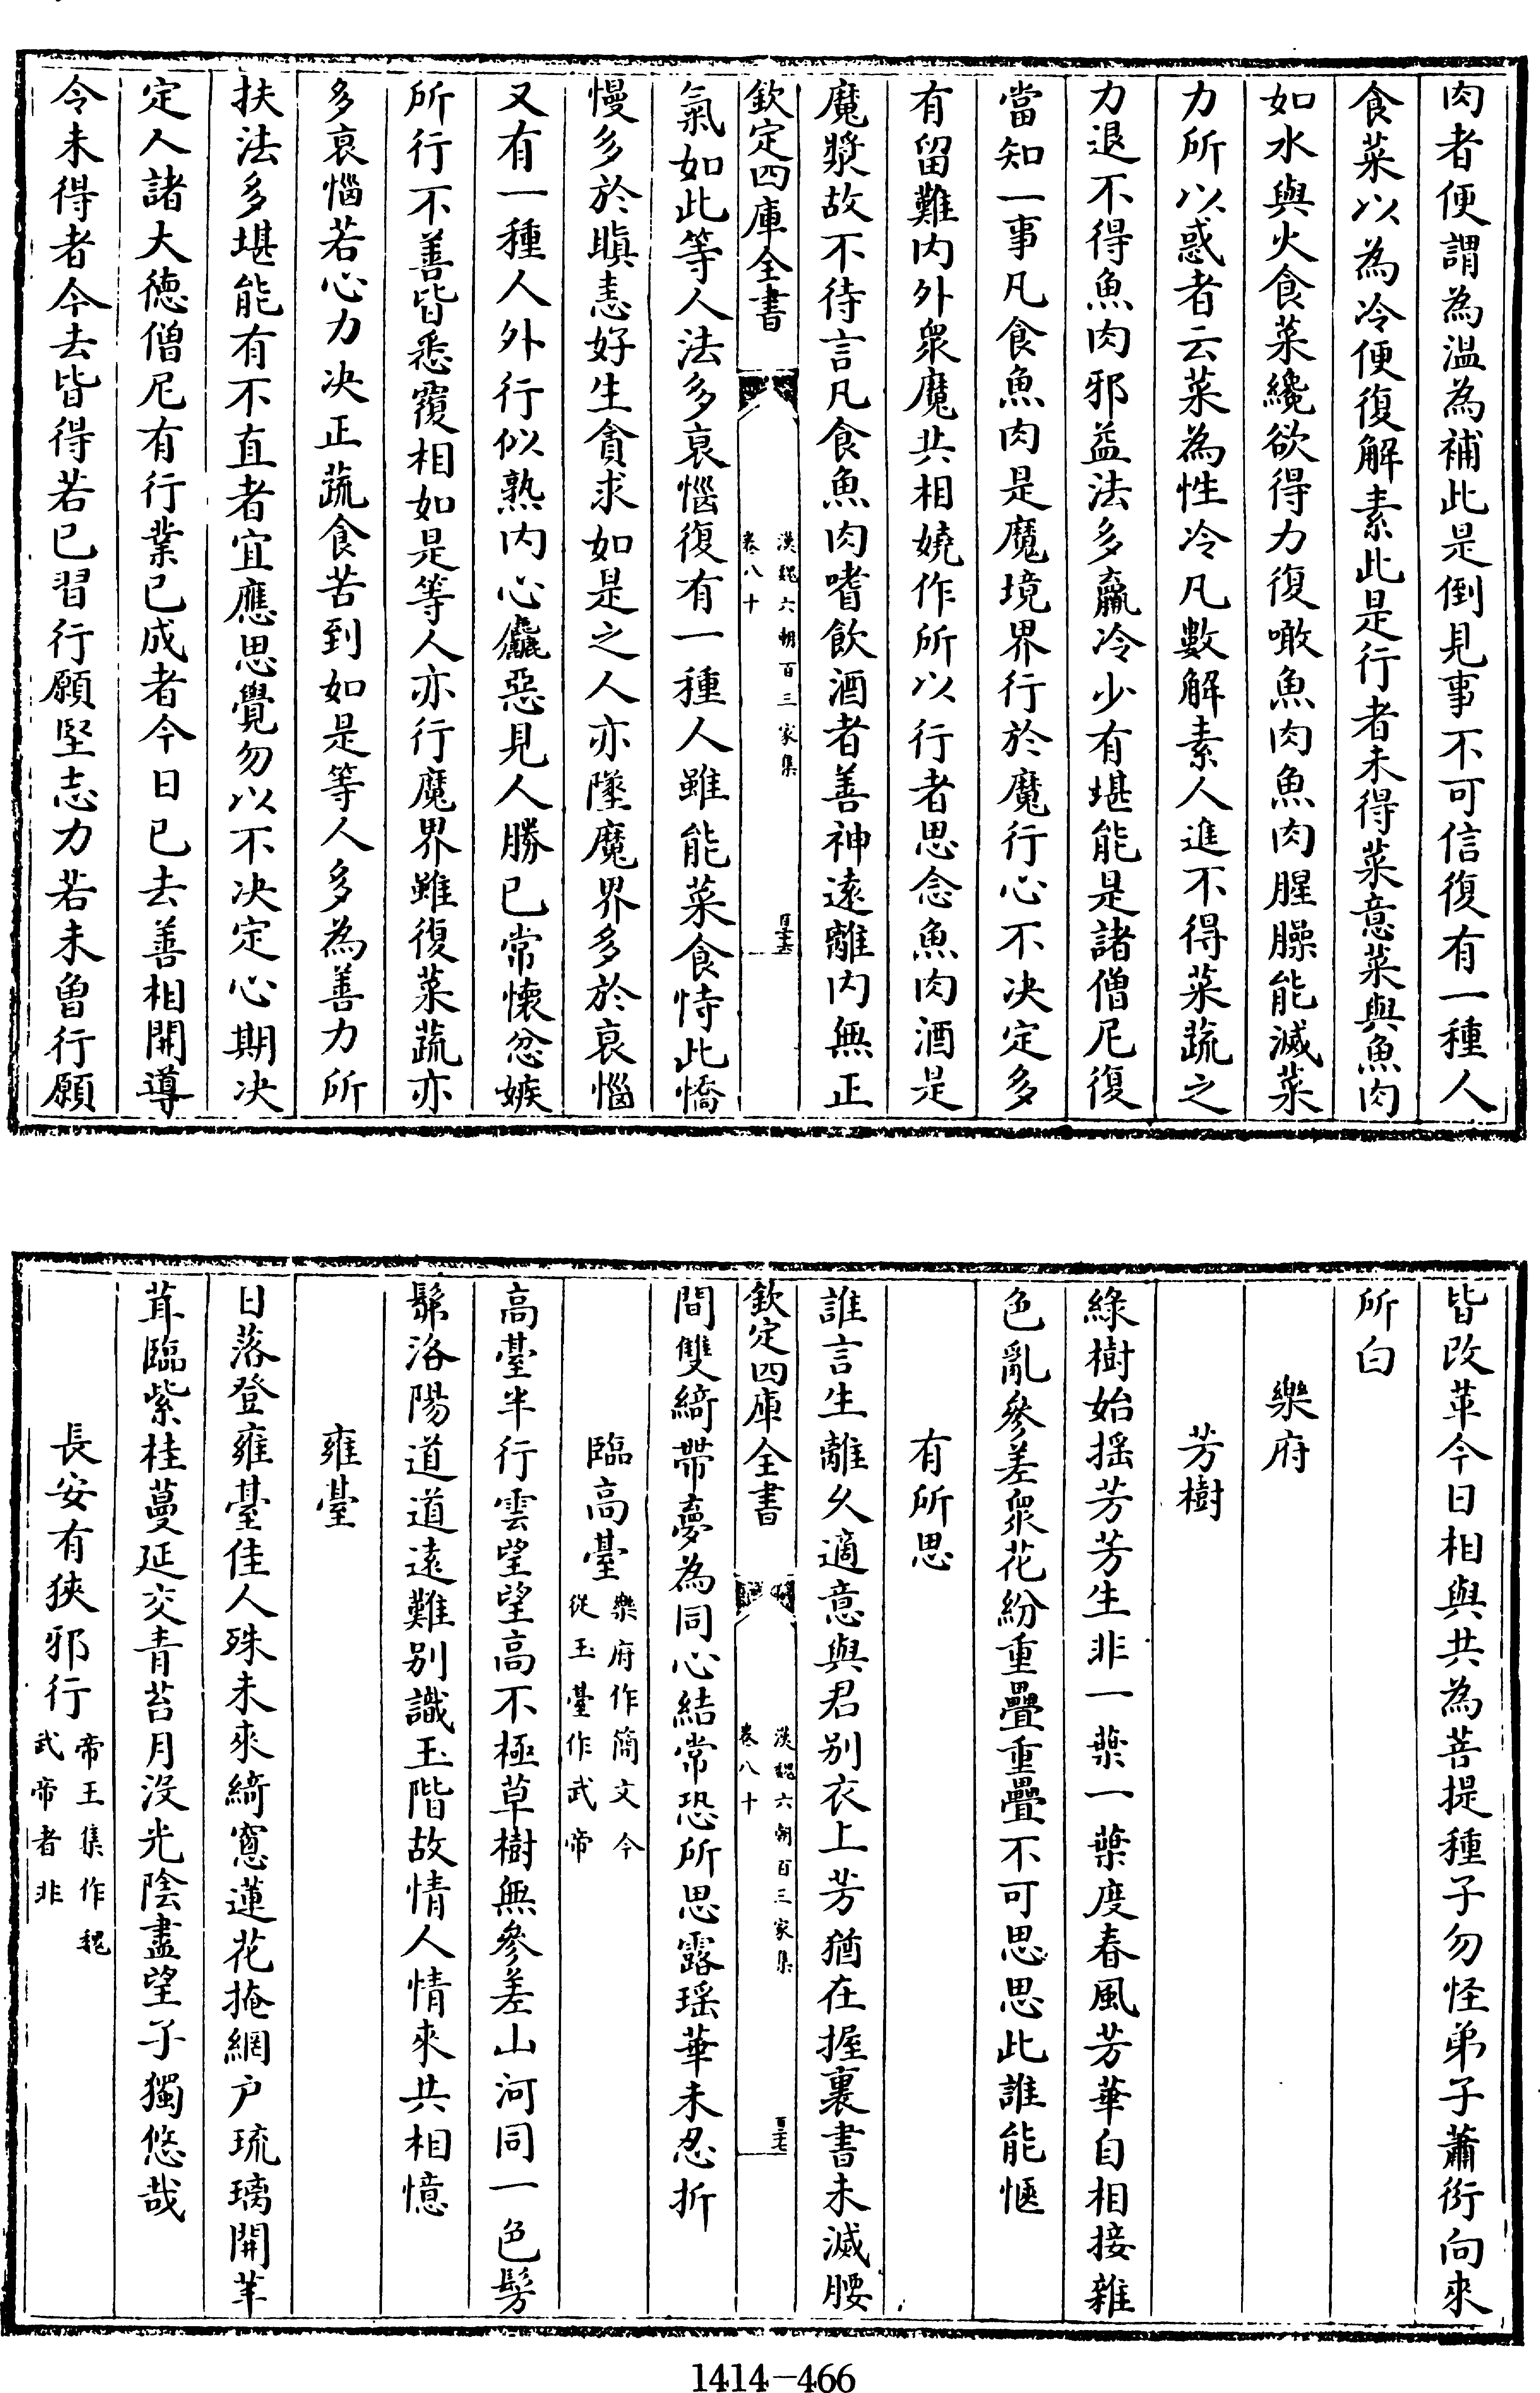 肉者便謂為温為補此是倒見事不可信復有一種人
食菜以為冷便復解素此是行者未得菜意菜與魚肉
如水與火食菜纔欲得力復噉魚肉魚肉腥臊能滅菜
力所以惑者云菜為性冷凡數解素人進不得菜蔬之
力退不得魚肉邪益法多羸冷少有堪能是諸僧尼復
當知一事凡食魚肉是魔境界行於魔行心不决定多
有留難内外衆魔共相嬈作所以行者思念魚肉酒是
魔漿故不待言凡食魚肉嗜飲酒者善神遠離内無正
欽定四庫全書
漢魏六朝百三家集
卷八十
氣如此等人法多衰惱復有一種人雖能菜食恃此憍
慢多於瞋恚好生貪求如是之人亦墜魔界多於衰惱
又有一種人外行似熟内心麤惡見人勝已常懷忿嫉
所行不善皆悉覆相如是等人亦行魔界雖復菜蔬亦
多衰惱若心力决正蔬食苦到如是等人多為善力所
扶法多堪能有不直者宜應思覺勿以不决定心期决
定人諸大徳僧尼有行業已成者今日已去善相開導
令未得者今去皆得若已習行願堅志力若未曾行願
皆改革今日相與共為菩提種子勿怪弟子蕭衍向來
所白
樂府
芳樹
綠樹始揺芳芳生非一葉一葉度春風芳華自相接雜
色亂參差衆花紛重疊重疊不可思思此誰能愜
有所思
誰言生離久適意與君别衣上芳猶在握裏書未滅腰
欽定四庫全書
漢魏六朝百三家集
卷八十
間雙綺帶夢為同心結常恐所思露瑶華未忍折
臨高臺
樂府作簡文今
從玉臺作武帝
高臺半行雲望望高不極草樹無參差山河同一色髣
髴洛陽道道遠難别識玉階故情人情來共相憶
雍臺
日落登雍臺佳人殊未來綺窻蓮花掩網户琉璃開芊
茸臨紫桂蔓延交青苔月没光陰盡望子獨悠哉
長安有狹邪行
帝王集作魏
武帝者非
1414-466